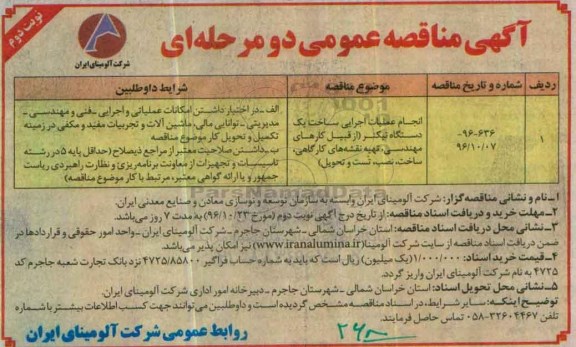 نوبت دوم
شرکت آلومینای ایران
آگهی مناقصه عمومی دو مرحله‌ای
ردیف
شماره و تاریخ مناقصه
موضوع مناقصه
شرایط داوطلبین
۱
۹۶-۶۳۶-
۹۶/۱۰/۰۷
انجام عملیات اجرایی ساخت یک
دستگاه تیکنر (از قبیل کارهای
مهندسی، تهیه نقشه‌های کارگاهی،
ساخت، نصب، تست و تحویل)
الف-در اختیار داشتن امکانات عملیاتی و اجرایی -فنی و مهندسی -
مدیریتی - توانایی مالی، ماشین آلات و تجربیات مفید و مکفی در زمینه
تکمیل و تحویل کار موضوع مناقصه
ب-داشتن صلاحیت معتبر از مراجع ذیصلاح (حداقل پایه ۵ در رشته
تاسیسات و تجهیزات از معاونت برنامه‌ریزی و نظارت راهبردی ریاست
جمهور و یا ارائه گواهی معتبر، مرتبط با کار موضوع مناقصه)
ParsNamadData
۱-نام و نشانی مناقصه‌گزار: شرکت آلومینای ایران وابسته به سازمان توسعه و نوسازی معادن و صنایع معدنی ایران.
۲-مهلت خرید و دریافت اسناد مناقصه: از تاریخ درج آگهی نوبت دوم (مورخ ۹۶/۱۰/۲۳) به مدت ۷ روز می‌باشد.
۳-نشانی محل دریافت اسناد مناقصه: استان خراسان شمالی -شهرستان جاجرم - شرکت آلومینای ایران-واحد امور حقوقی و قراردادها در
ضمن دریافت اسناد مناقصه از سایت شرکت آلومینا (www.iranalumina.ir) نیز امکان پذیر می‌باشد.
۴-قیمت خرید اسناد: ۱/۰۰۰/۰۰۰ (یک میلیون) ریال است که باید به شماره حساب فراگیر ۴۷۲۵/۸۵۸۰۰ نزد بانک تجارت شعبه جاجرم کد
۴۷۲۵ به نام شرکت آلومینای ایران واریز گردد.
۵-نشانی محل تحویل اسناد: استان خراسان شمالی -شهرستان جاجرم - دبیرخانه امور اداری شرکت آلومینای ایران.
توضیح اینکه: سایر شرایط، در اسناد مناقصه مشخص گردیده است و داوطلبین می‌توانند جهت کسب اطلاعات بیشتر با شماره
تلفن ۳۲۶۰۴۴۶۷-۰۵۸ تماس حاصل فرمایند.
روابط عمومی شرکت آلومینای ایران